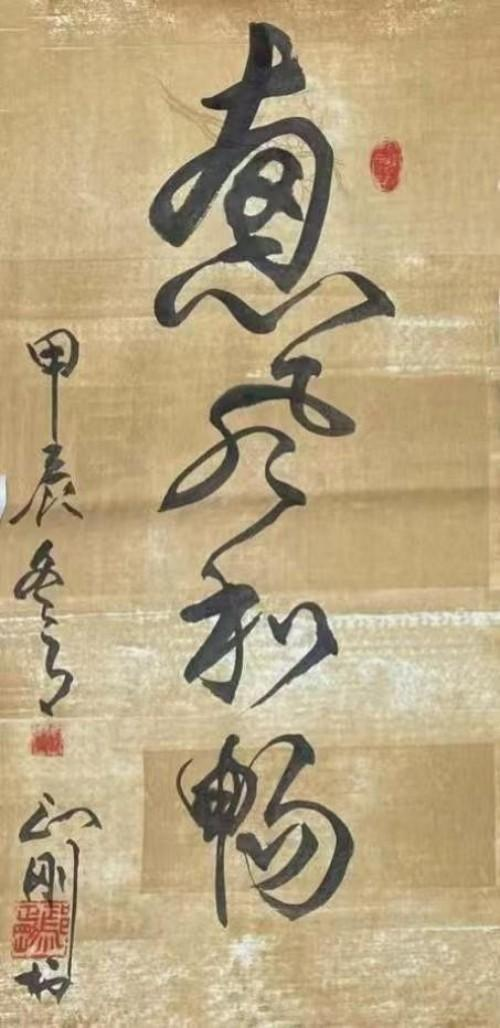 惠风和畅
甲辰冬月
正刚